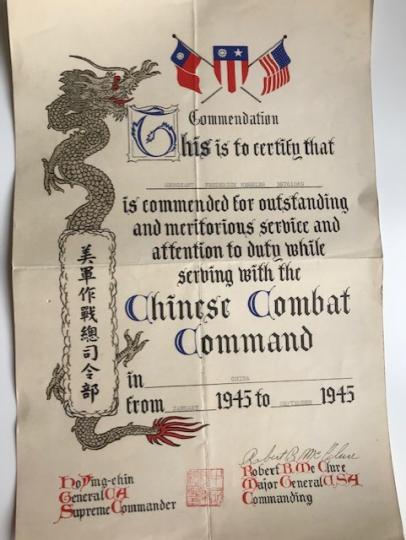 Commendation
This is to certify that
SERGEANT FREDERICK
is commended for outstanding
and meritorious service and
attention to duty while
serving with the
Chinese Combat
Command
in CHINA
from JANUARY 1945 to SEPTEMBER 1945
美軍作戰總司令部
Ho Ying-chin
General CA
Supreme Commander
Robert B. McClure
Robert B. Mc Clure
Major General USA
Commanding